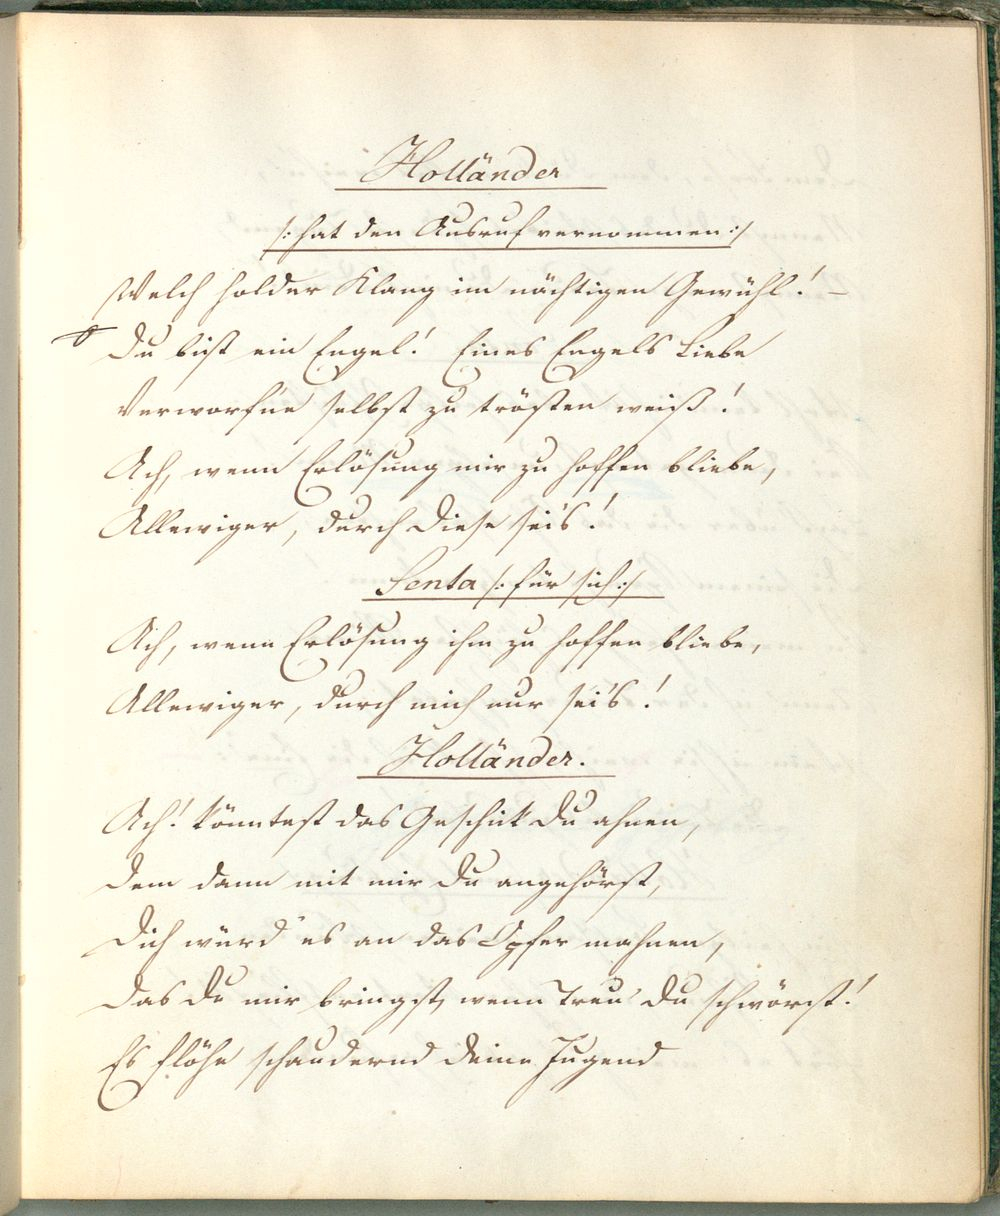 Holländer
/: hat den Ausruf vernommen :/
Welch holder Klang im nächtigen Gewühl! –
Du bist ein Engel! Eines Engels Liebe
Verworf'ne selbst zu trösten weiß!
Ach, wenn Erlösung mir zu hoffen bliebe,
Allewiger, durch Diese sei's!
Senta /: für sich :/
Ach, wenn Erlösung ihm zu hoffen bliebe,
Allewiger, durch mich nur sei's!
Holländer.
Ach! könntest das Geschick Du ahnen,
Dem dann mit mir Du angehörst,
Dich würd' es an das Opfer mahnen,
Das Du mir bringst, wenn Treu' Du schwörst!
Es flöhe schaudernd Deine Jugend